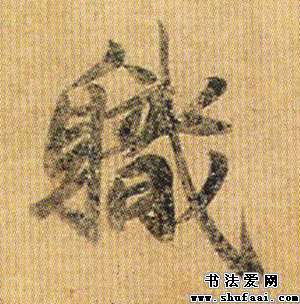 軄
书法爱网
www.shufaai.com